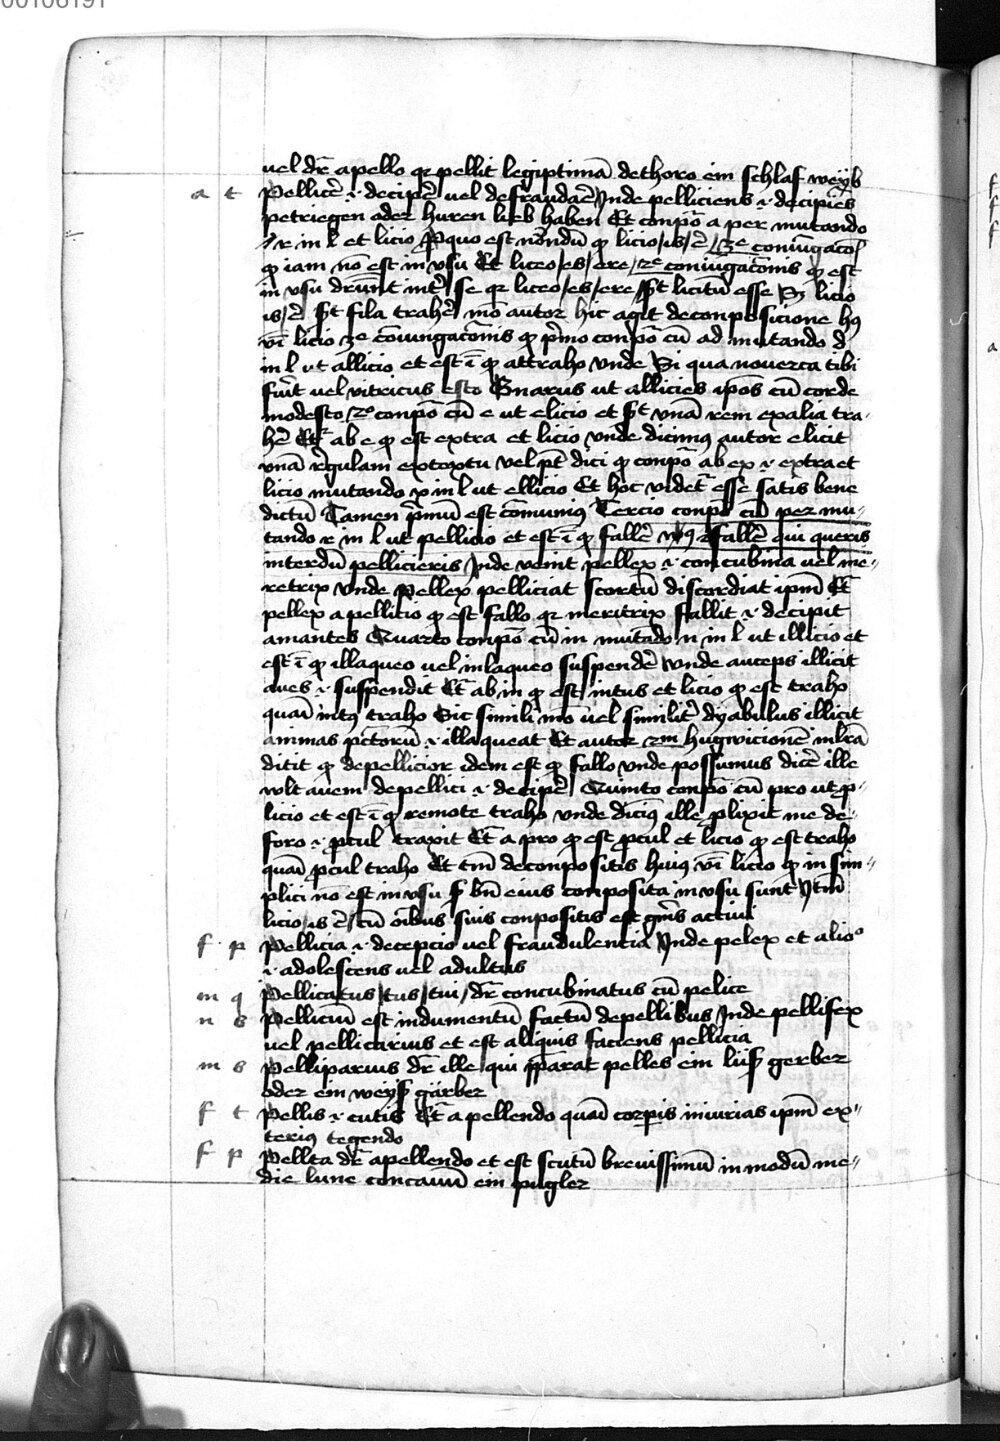 00106191
vel dr̄ a pello qr pellit legiptimā de thoro ein schlaf weyb
a t Pellicē .i. decipē vel defraudaē Inde pelliciens .i. decipiēs
petriegen oder huren lieb haben Et conpōr a per mutando
r in l et licio Pro quo est nōndū qđ licio /is /ē /3e coniūgacōis
qđ iam nō est in vsu Et liceo /es /ere /2e coniugacōnis qđ est
in vsu drūnt int̄ se qr liceo /es /ere sȝt licitū esse Sȝ licio
is /ē sȝt fila trahē mō autor hic agit de conposicione hȝ
vī licio 3e cōniungacōnis qđ p̄mo conpōr cū ad mutando d
in l ut allicio et est ī qđ attraho vnde Si qua nouerca tibi
fūit vel vitricus esto Gnarus ut allicies ipōs cū corde
modesto 2o conpōr cū e ut elicio et sȝt vnā rem ex alia tra-
hē Et ab e qđ est extra et licio vnde dicimȝ autor elicit
vnā rēgulam ex textu vel pt̄ dici qđ conpōr ab ex .i. extra et
licio mutando x in l ut ellicio Et hoc videt̄ esse satis bene
dictū Tamen p̄mū est cōmuniȝ Tercio conpōr cū per mu-
tando r in l ut pellicio et est ī qđ fallē fallē qui queris
interdū pellicieris Inde venit pellex .i. concubina vel me-
retrix vnde Pellex pelliciat scortū discordiat ipm̄ Et
pellex a pellicio qđ est fallo qr meritrix fallit .i. decipit
amantes Quarto conpōr cū in mutādo n in l ut illicio et
est ī qđ illaqueo vel inlaqueo suspendē vnde auceps illicit
aues .i. suspendit Et ab in qđ est intus et licio qđ est traho
quāi intȝ traho Sic simili mō vel similit̄ dyabulus illicit
animas pctōrū .i. illaqueat Et autor 2m hugwicionē in lrā
dicit qđ depellicior idem est qđ fallo vnde possumus dicē ille
volt auem depellici .i. decipē Quinto conpōr cū pro ut p̄-
licio et est ī qđ remote traho vnde dicimȝ ille plixit me de
foro .i. pcul traxit Et a pro qđ est pcul et licio qđ est traho
quāi pcul traho Et tm̄ de conpositis huiȝ vī licio qđ in sim-
plici nō est in vsu sȝ bn̄ eius composita in vsu sunt Itm̄
licio /is ē /cū oībus suis conpositis est gn̄is actiui
f p Pellicia .i. decepcio vel fraudulencia Inde pelex et alio
.i. adolescens vel adultus
m q Pellicatus /tus /tui /dr̄ concubinatus cū pelice
n s Pelliciū est indumentū factū de pellibus Inde pellifex
vel pellicarius et est aliquis faciens pellicia
m s Pelliparius dr̄ ille qui pparat pelles ein gerber
oder ein weyß gärber
f t Pellis .i. cutis Et a pellendo quāi corpis iniurias ipm̄ ex-
teriȝ tegendo
f p Pellta dr̄ a pellendo et est scutū breuissimū in modū me-
die lune concauū ein pugler